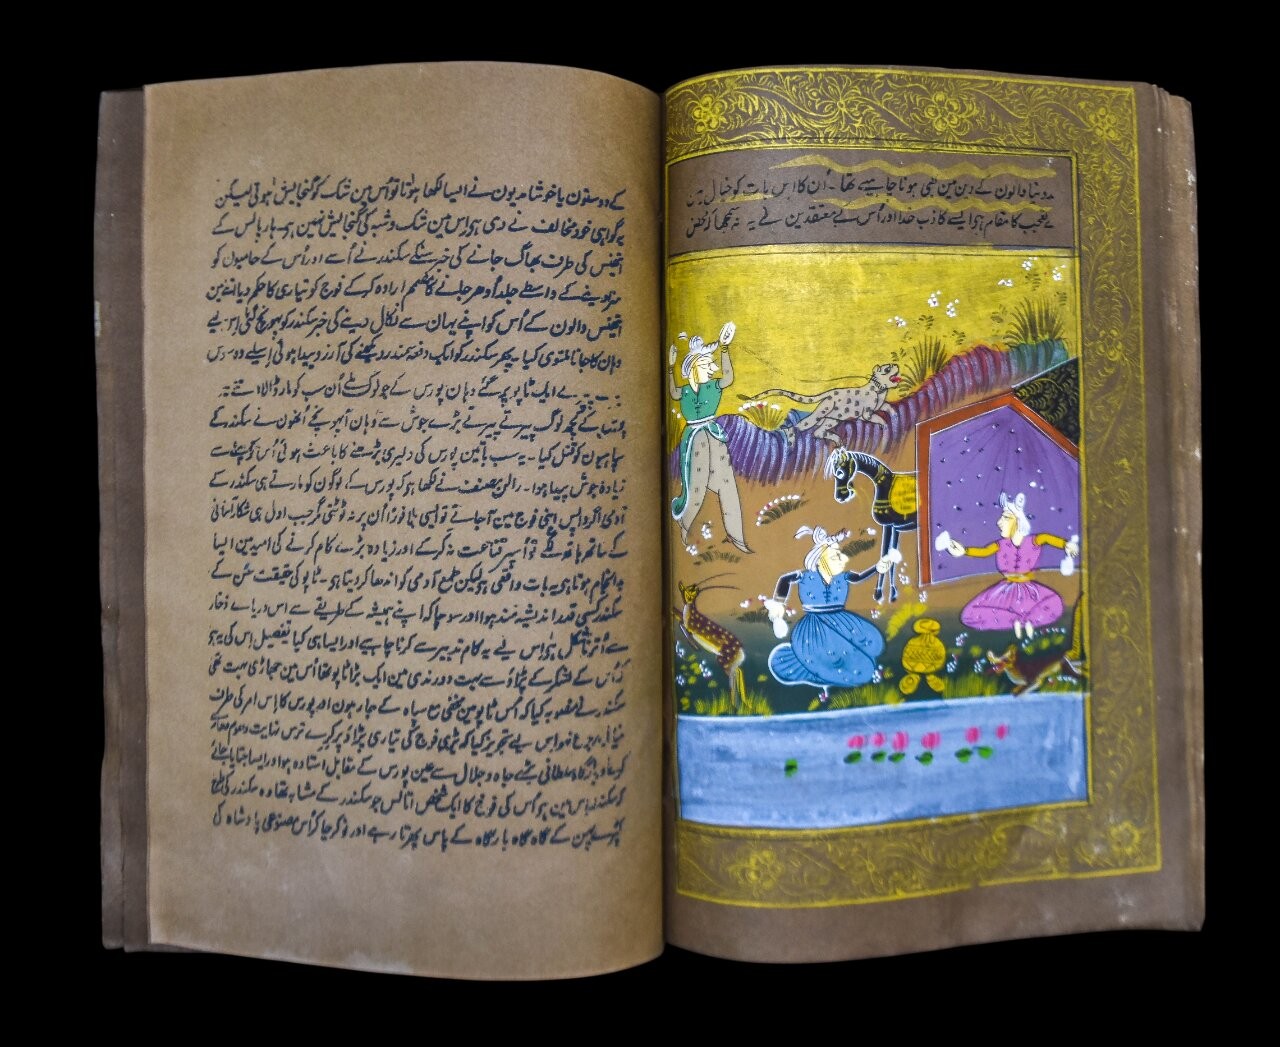 کے دوستون یا خوشامدیون نے ایسا لکھا ہوتا تو اُس مین شک کو گنجایش ہوتی لیکن
یہ گواہی خود مخالف نے دی ہے اس مین شک و شبہ کی گنجایش نہین ہے
کی طرف بھاگ جانے کی خبر سنکے سکندر نے اُسے اور اُس کے حامیون کو
سزا دینے کے واسطے جلد اُدھر جانے کا ارادہ کر کے فوج کو تیاری کا حکم دیا
والون کے اُس کو اپنے یہان سے نکال دینے کی خبر سکندر کو پہونچ گئی اس لیے
وہان کا جانا ملتوی کیا۔ پھر سکندر کو ایک دفعہ سمندر دیکھنے کی آرزو پیدا ہوئی اسلیے وہ
ایک ٹاپو پر گئے وہان پورس کے جو لوگ ملے اُن سب کو مار ڈالا اتنے
کے کچھ لوگ پیرتے پیرتے بڑے جوش سے وہان آ پہونچے اُنھون نے سکندر کے
سپاہیون کو قتل کیا۔ یہ سب باتین پورس کی دلیری بڑھنے کا باعث ہوئی اُس کو
زیادہ جوش پیدا ہوا۔ مصنف نے لکھا ہے کہ پورس کے لوگون کو مارتے ہی سکندر کے
آدمی اگر واپس اپنی فوج مین آجاتے تو ایسی بلا فوراً اُن پر نہ ٹوٹتی مگر جب اول ہی شکار آسانی
کے ساتھ ہاتھ لگے تو اُسپر قناعت نہ کر کے اور زیادہ بڑے کام کرنے کی امید مین ایسا
انجام ہوتا ہے یہ بات واقعی ہے لیکن طمع آدمی کو اندھا کر دیتا ہے۔ ٹاپو کی حقیقت سُن کے
سکندر کسی قدر اندیشہ مند ہوا اور سوچا کہ اپنے ہمیشہ کے طریقے سے اس دریاے ذخار
سے اُترنا مشکل ہے اس نے یہ کام تدبیر سے کرنا چاہیے اور ایسا ہی کیا تفصیل اس کی یہ ہے
کہ اُس کے لشکر کے پڑاؤ سے بہت دور ندی مین ایک بڑا ٹاپو تھا اُس مین جھاڑی بہت تھی
سکندر نے منصوبہ کیا کہ اُس ٹاپو مین مخفی مع سپاہ کے جا رہون اور پورس کا اس امر کی طرف
خیال نہو اس لیے تجویز کیا کہ بڑی فوج کی تیاری پڑاؤ پر کرے
بارگاہ سلطانی بڑے جاہ و جلال سے عین پورس کے مقابل استادہ ہو اور ایسا جتایا جائے
کہ سکندر اس مین ہے اُس کی فوج کا ایک شخص اٹالس جو سکندر کے مشابہ تھا وہ سکندر کی
کپڑے پہن کے گاہ گاہ بارگاہ کے پاس پھرتا رہے اور نوکر چاکر اُس مصنوعی پادشاہ کی
دنیا والون کے دین مین نبی ہونا چاہیے تھا۔ اُن کا اس بات کو خیال
تعجب کا مقام ہے ایسے کاذب خدا اور اُس کے معتقدین نے یہ نہ سمجھا کہ